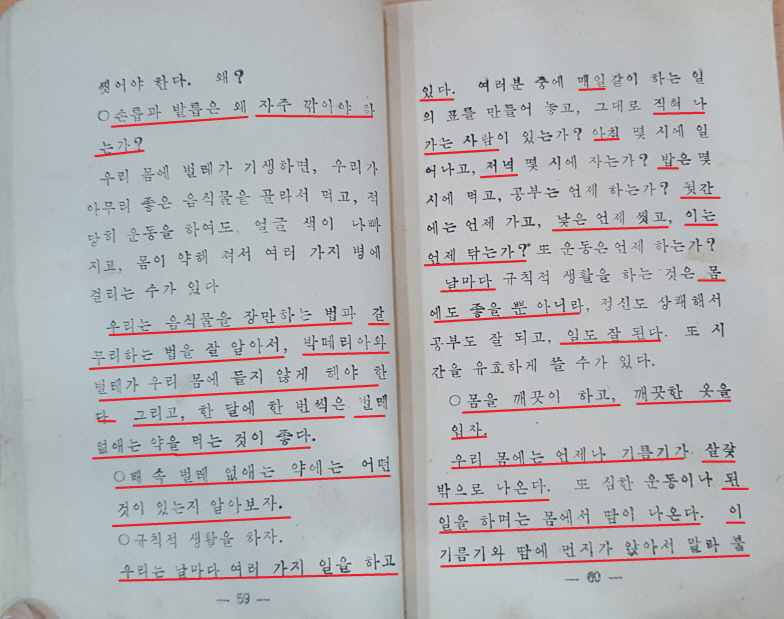 씻어야 한다. 왜?
○손톱과 발톱은 왜 자주 깎아야 하
는가?
우리 몸에 벌레가 기생하면, 우리가
아무리 좋은 음식물을 골라서 먹고, 적
당히 운동을 하여도 얼굴 색이 나빠
지고, 몸이 약해 져서 여러 가지 병에
걸리는 수가 있다.
우리는 음식물을 장만하는 법과 갈
무리하는 법을 잘 알아서, 박테리아와
벌레가 우리 몸에 들지 않게 해야 한
다. 그리고, 한 달에 한 번씩은 벌레
없애는 약을 먹는 것이 좋다.
○배 속 벌레 없애는 약에는 어떤
것이 있는지 알아보자.
○규칙적 생활을 하자.
우리는 날마다 여러 가지 일을 하고
— 59 —
있다. 여러분 중에 매일같이 하는 일
의 표를 만들어 놓고, 그대로 직혀 나
가는 사람이 있는가? 아침 몇 시에 일
어나고, 저녁 몇 시에 자는가? 밥은 몇
시에 먹고, 공부는 언제 하는가? 뒷간
에는 언제 가고, 낯은 언제 씻고, 이는
언제 닦는가? 또 운동은 언제 하는가?
날마다 규칙적 생활을 하는 것은 몸
에도 좋을 뿐 아니라, 정신도 상쾌해서
공부도 잘 되고, 일도 잘 된다. 또 시
간을 유효하게 쓸 수가 있다.
○몸을 깨끗이 하고, 깨끗한 옷을
입자.
우리 몸에는 언제나 기름기가 살갗
밖으로 나온다. 또 심한 운동이나 된
일을 하며는 몸에서 땀이 나온다. 이
기름기와 땀에 먼지가 앉아서 말라 붙
— 60 —